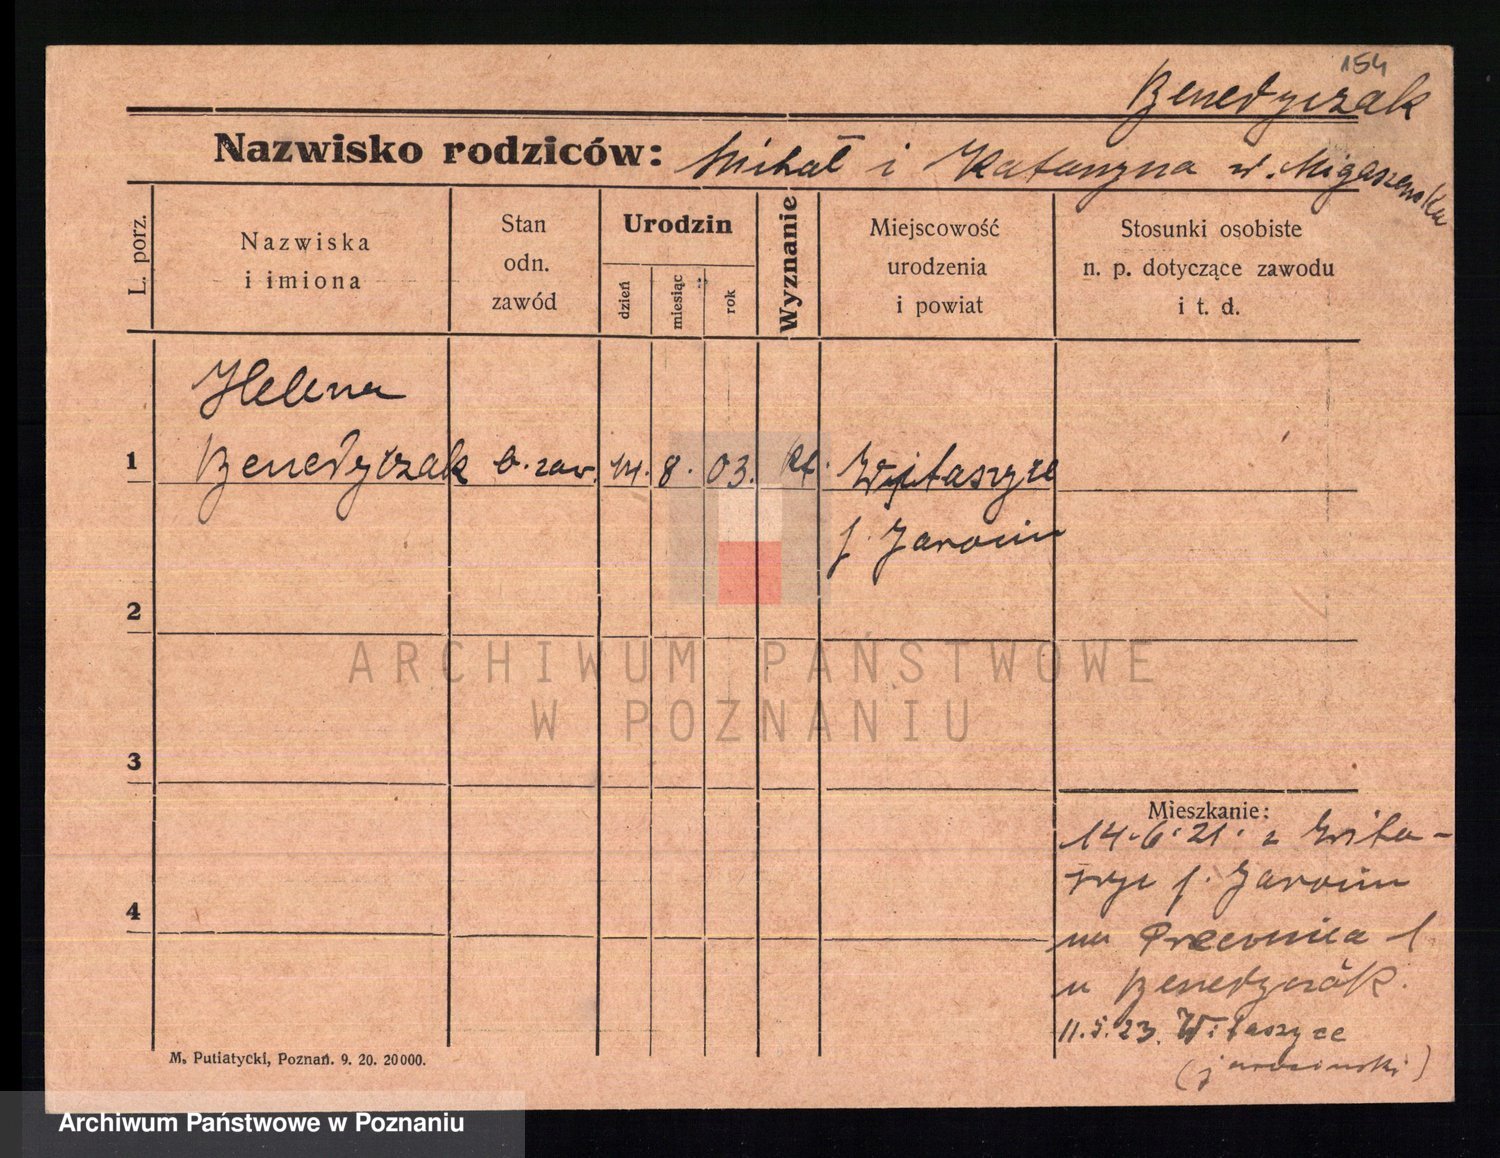 154
Benedyczak
Nazwisko rodziców: Michał i Katarzyna
L. porz.
Nazwiska
i imiona
Stan
odn.
zawód
Urodzin
dzień
miesiąc
rok
Wyznanie
Miejscowość
urodzenia
i powiat
Stosunki osobiste
n. p. dotyczące zawodu
i t. d.
Helena
1 Benedyczak b. zaw. 14. 8. 03. kt. Witaszyce
p. Jarocin
2
ARCHIWUM PAŃSTWOWE
W POZNANIU
3
4
Mieszkanie:
14.6.21. z Wita-
szyc p. Jarocin
na 1
u Benedyczak.
11.5.23. Witaszyce
(jarociński)
M. Putiatycki, Poznań. 9. 20. 20000.
Archiwum Państwowe w Poznaniu